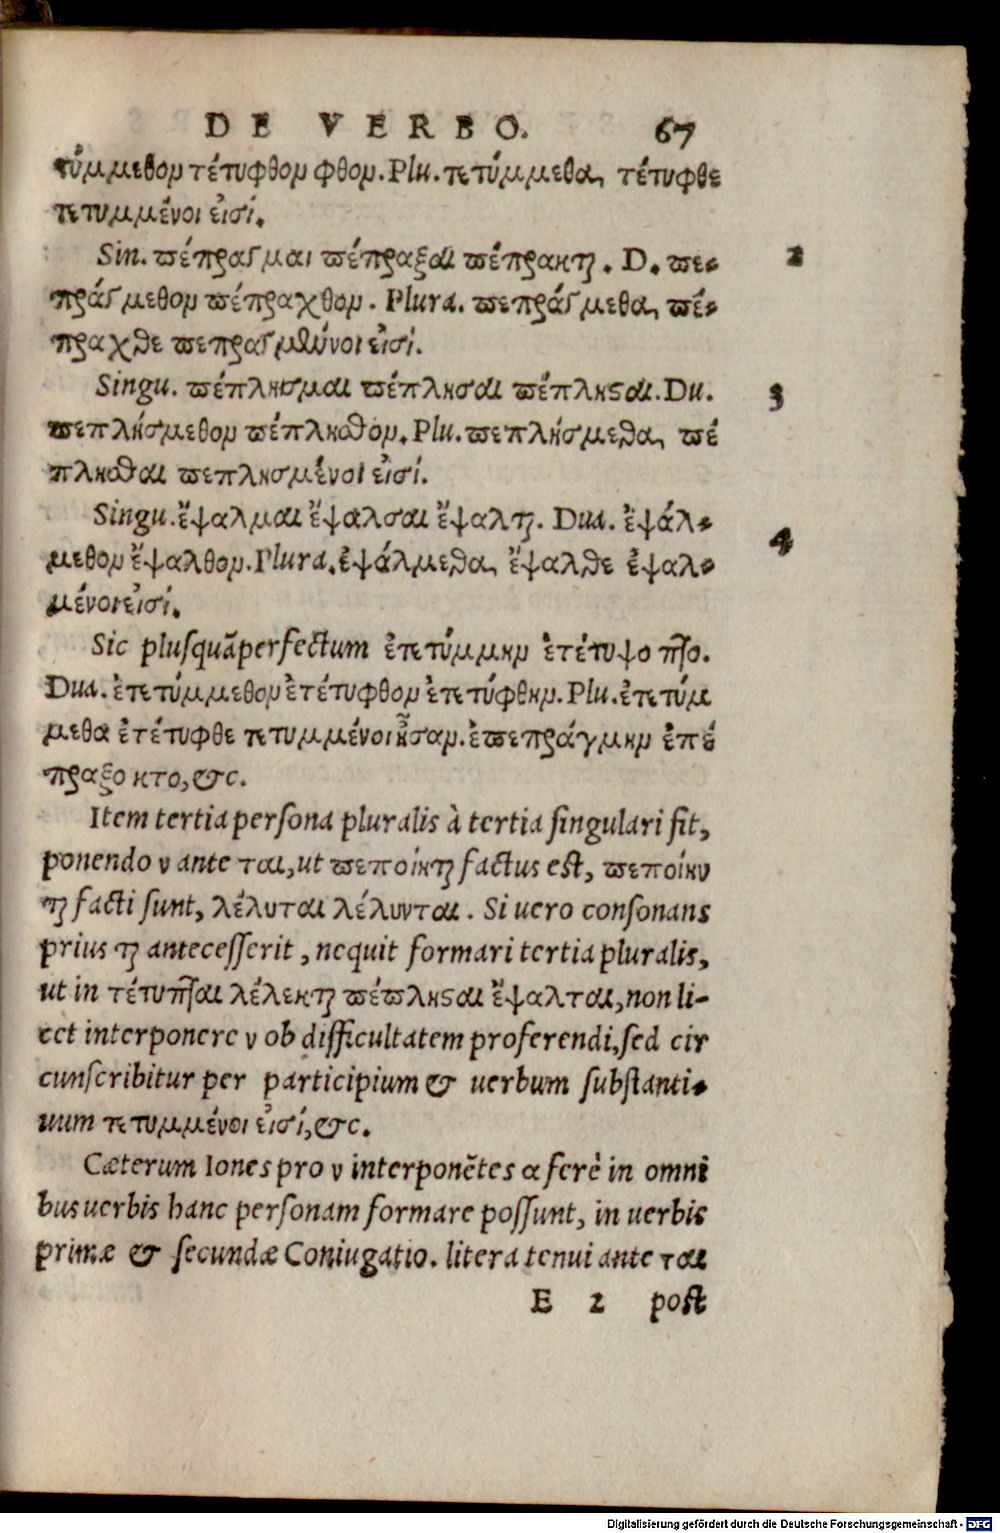 DE VERBO. 67
τύμμεθον τέτυφθον φθον. Plu. τετύμμεθα, τέτυφθε
τετυμμένοι εἰσί.
Sin. πέπραγμαι πέπραξαι πέπρακται. D. πε-
πράγμεθον πέπραχθον. Plura. πεπράγμεθα, πέ-
πραχθε πεπραγμένοι εἰσί. 2
Singu. πέπλησμαι πέπλησαι πέπλησται. Du.
πεπλήσμεθον πέπλησθον. Plu. πεπλήσμεθα, πέ
πλησθαι πεπλησμένοι εἰσί. 3
Singu. ἔψαλμαι ἔψαλσαι ἔψαλται. Dua. ἐψάλ-
μεθον ἔψαλθον. Plura. ἐψάλμεθα, ἔψαλθε ἐψαλ-
μένοι εἰσί. 4
Sic plusquãperfectum ἐτετύμμην ἐτέτυψο πτο.
Dua. ἐτετύμμεθον ἐτέτυφθον ἐτετύφθην. Plu. ἐτετύμ
μεθα ἐτέτυφθε τετυμμένοι ἦσαν. ἐπεπράγμην ἐπέ
πραξο κτο, &c.
Item tertia persona pluralis à tertia singulari fit,
ponendo ν ante ται, ut πεποίηται factus est, πεποίην
ται facti sunt, λέλυται λέλυνται. Si uero consonans
prius ται antecesserit, nequit formari tertia pluralis,
ut in τέτυπται λέλεκται πέπλησται ἔψαλται, non li-
cet interponere ν ob difficultatem proferendi, sed cir
cunscribitur per participium & uerbum substanti-
uum τετυμμένοι εἰσί, &c.
Cæterum Iones pro ν interponẽtes α ferè in omni
bus uerbis hanc personam formare possunt, in uerbis
primæ & secundæ Coniugatio. litera tenui ante ται
E 2 post
Digitalisierung gefördert durch die Deutsche Forschungsgemeinschaft - DFG